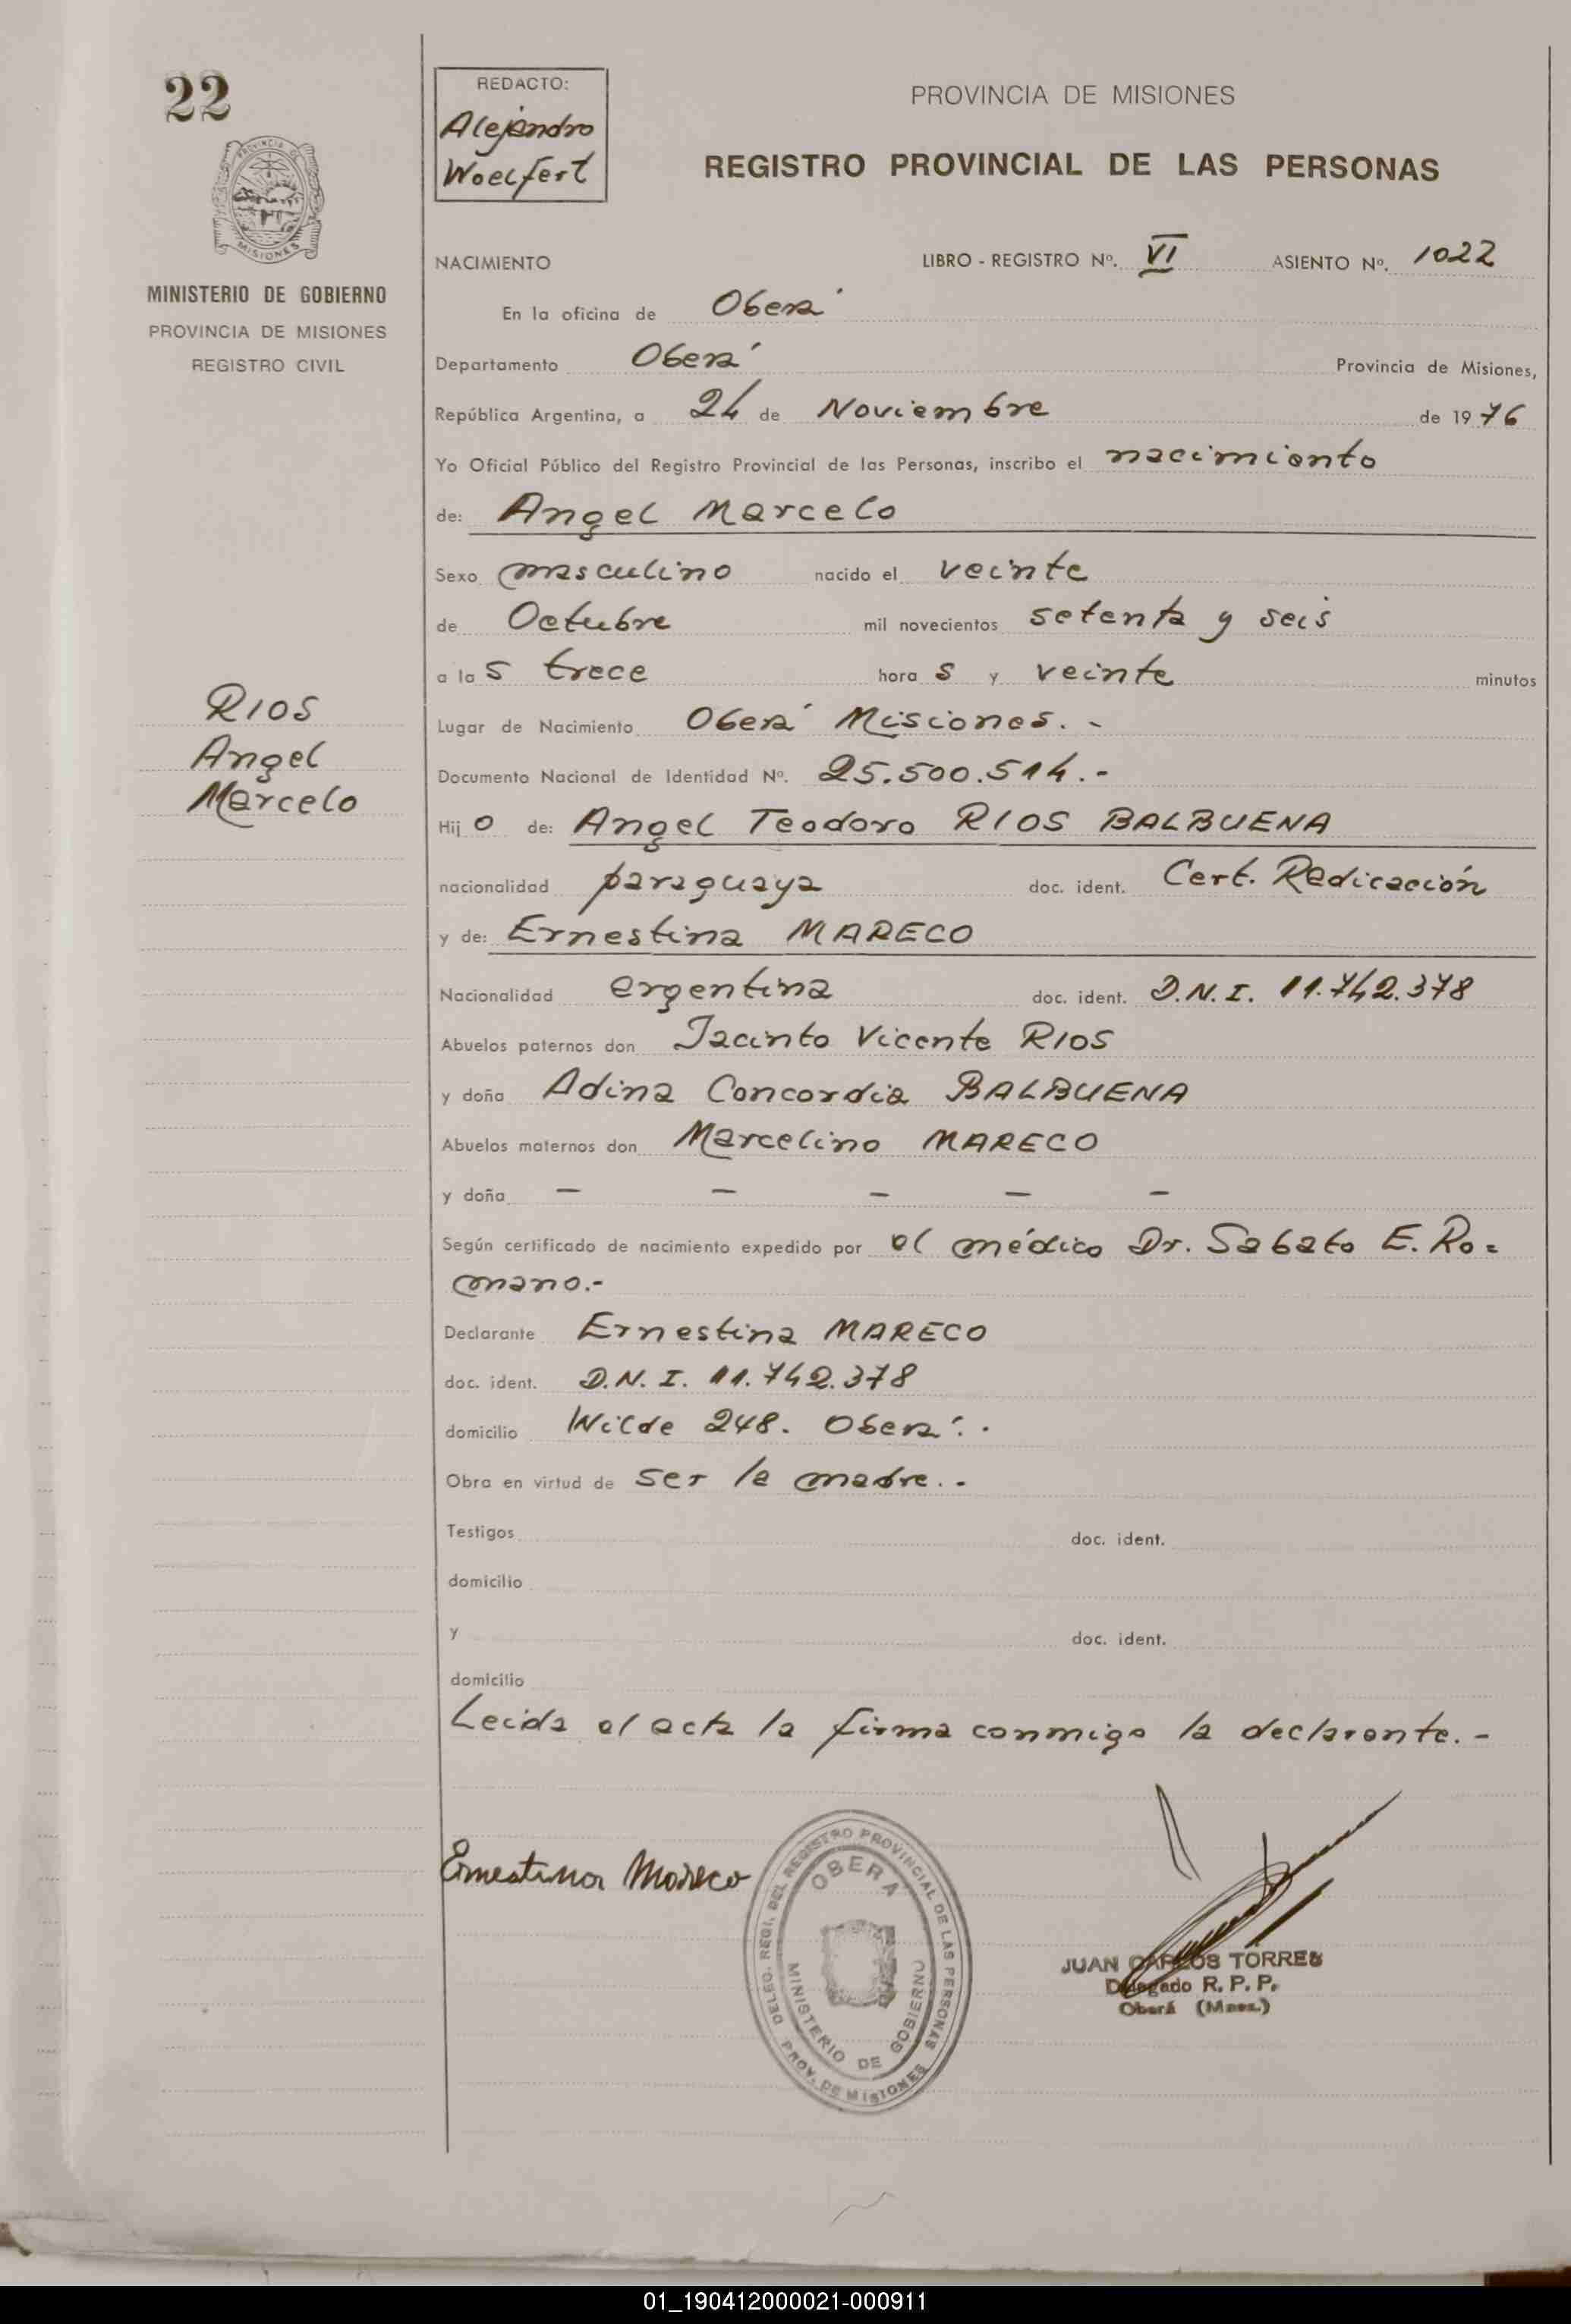 22
PROVINCIA DE MISIONES
MINISTERIO DE GOBIERNO
PROVINCIA DE MISIONES
REGISTRO CIVIL
RIOS
Angel
Marcelo
REDACTO:
Alejandro
Woelfert
PROVINCIA DE MISIONES
REGISTRO PROVINCIAL DE LAS PERSONAS
NACIMIENTO LIBRO - REGISTRO Nº. VI ASIENTO Nº. 1022
En la oficina de Oberá
Departamento Oberá Provincia de Misiones,
República Argentina, a 24 de Noviembre de 1976
Yo Oficial Público del Registro Provincial de las Personas, inscribo el nacimiento
de: Angel Marcelo
Sexo masculino nacido el veinte
de Octubre mil novecientos setenta y seis
a las trece horas y veinte minutos
Lugar de Nacimiento Oberá Misiones.-
Documento Nacional de Identidad Nº. 25.500.514.-
Hijo de: Angel Teodoro RIOS BALBUENA
nacionalidad paraguaya doc. ident. Cert. Radicación
y de: Ernestina MARECO
Nacionalidad argentina doc. ident. D.N.I. 11.742.378
Abuelos paternos don Jacinto Vicente RIOS
y doña Adina Concordia BALBUENA
Abuelos maternos don Marcelino MARECO
y doña — — — — —
Según certificado de nacimiento expedido por el médico Dr. Sabato E. Ro=
mano.-
Declarante Ernestina MARECO
doc. ident. D.N.I. 11.742.378
domicilio Wilde 248. Oberá.-
Obra en virtud de ser la madre.-
Testigos doc. ident.
domicilio
y doc. ident.
domicilio
Leida el acta la firma conmigo la declarante.-
Ernestina Mareco
DELEG. REGI. DEL REGISTRO PROVINCIAL DE LAS PERSONAS
OBERA
MINISTERIO DE GOBIERNO
PROV. DE MISIONES
JUAN CARLOS TORRES
Delegado R. P. P.
Oberá (Mnes.)
01_190412000021-000911